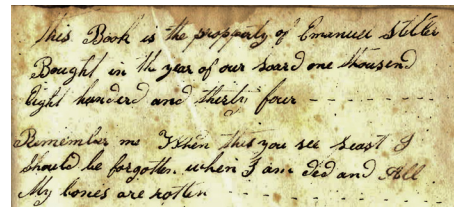 This Book is the propperty of Emanuel Stetler
Bought in the year of our Loard one thousend
Eight hunderd and thirti four
Remember me When this you see Least I
Should be forgotten when I am Ded and All
My bones are rotten